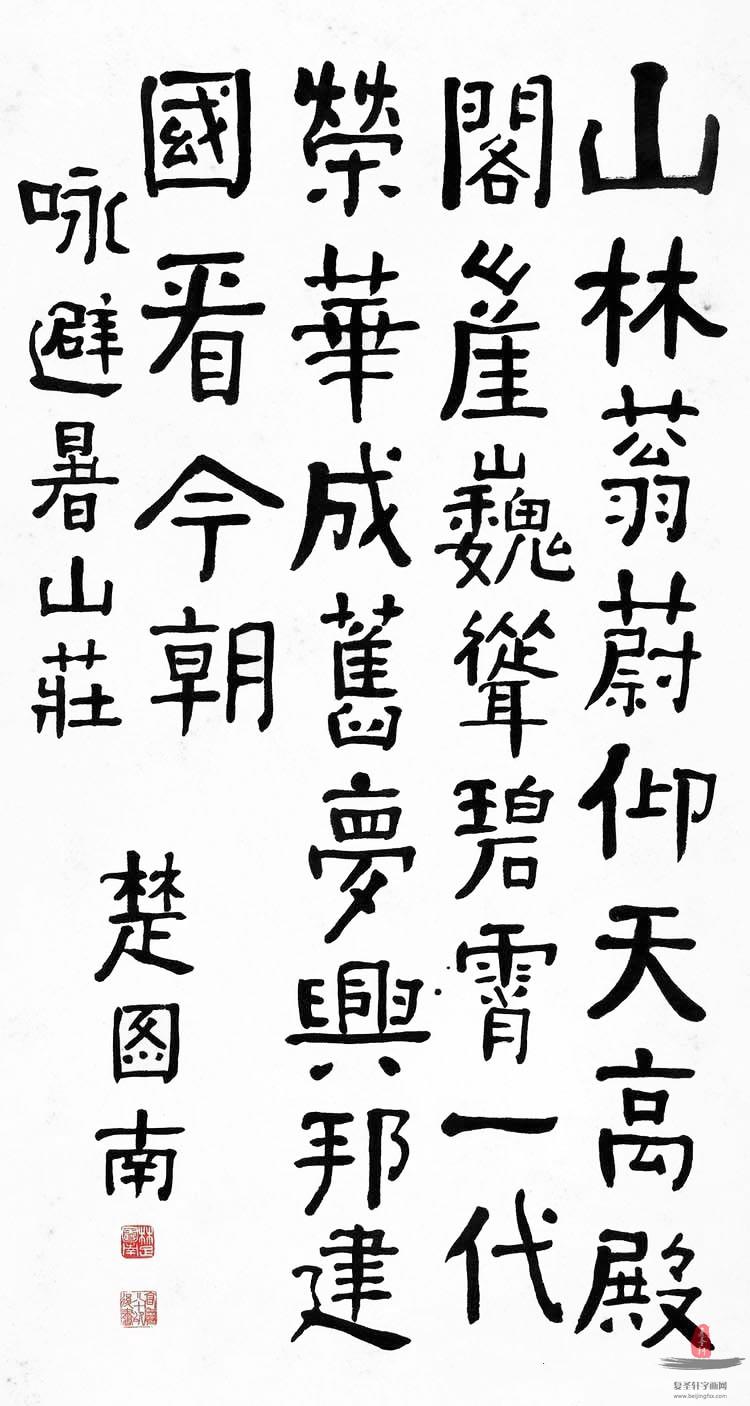 山林蓊蔚仰天高殿
閣崔巍聳碧霄一代
榮華成舊夢興邦建
國看今朝
咏避暑山莊
楚图南
复圣轩字画网
www.beijingfsx.com